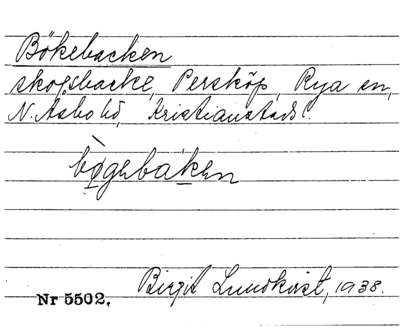 Bökebacken
skogsbacke, Persköp, Rya sn,
N. Åsbo hd, Kristianstads l.
bögebaken
Birgit Lundkvist, 1938.
Nr 5502.